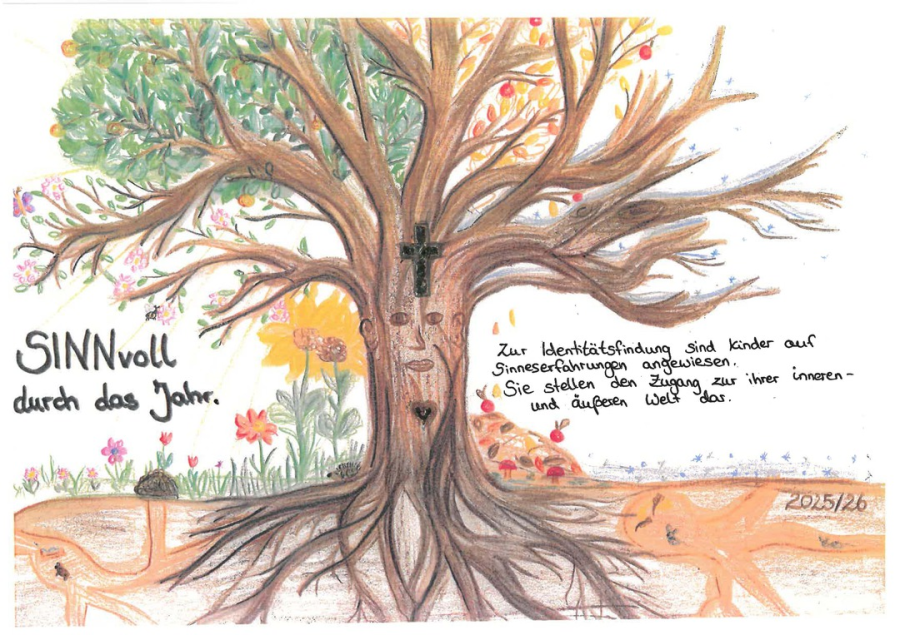 SINNvoll
durch das Jahr.
Zur Identitätsfindung sind Kinder auf
Sinneserfahrungen angewiesen.
Sie stellen den Zugang zur ihrer inneren-
und äußeren Welt dar.
2025/26